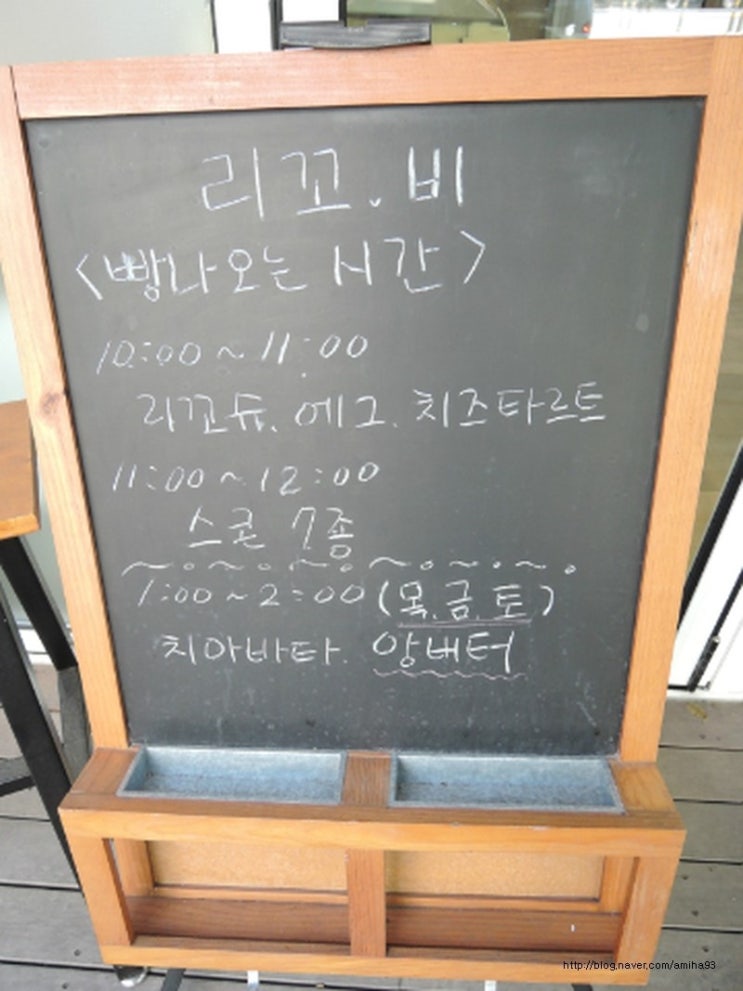 리꼬.비
<빵나오는 시간>
10:00 ~ 11:00
리꼬듀. 에그. 치즈타르트
11:00 ~ 12:00
스콘 7종
~。~。~。~。~。~。
1:00 ~ 2:00 (목.금.토)
치아바타. 앙버터
http://blog.naver.com/amiha93